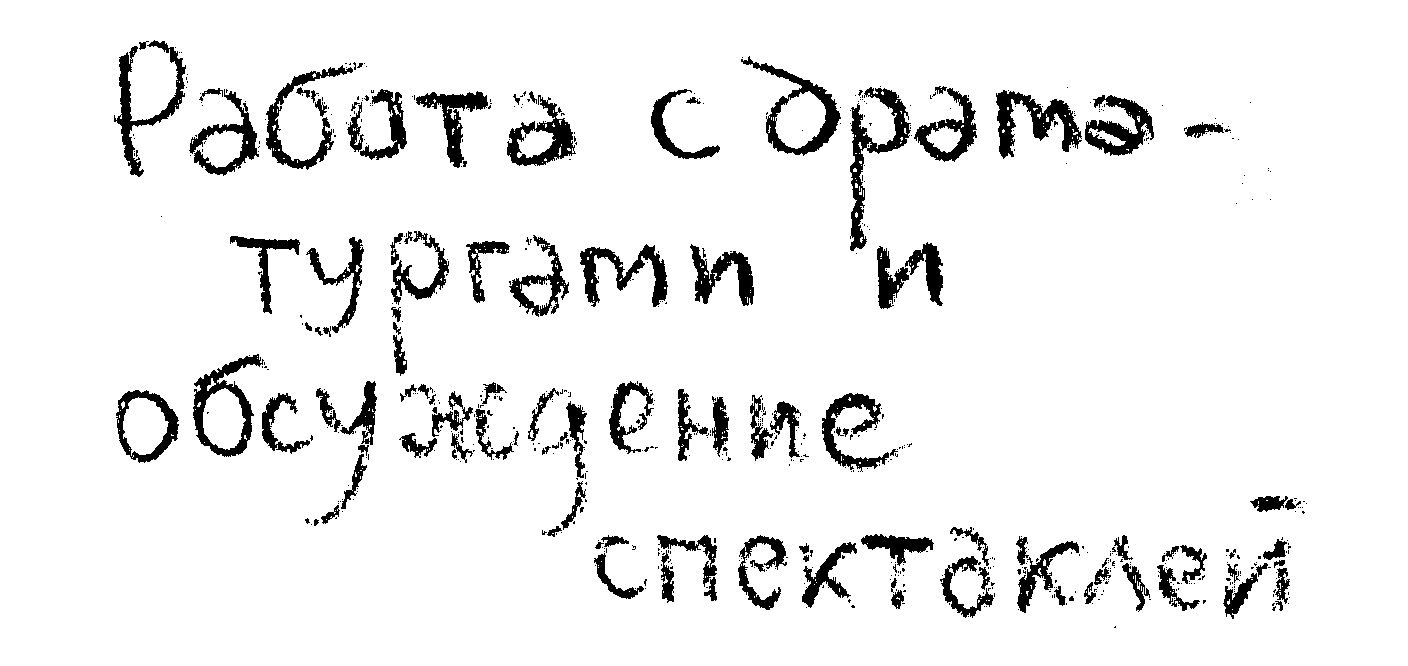 Работа с драма-
тургами и
обсуждение
спектаклей